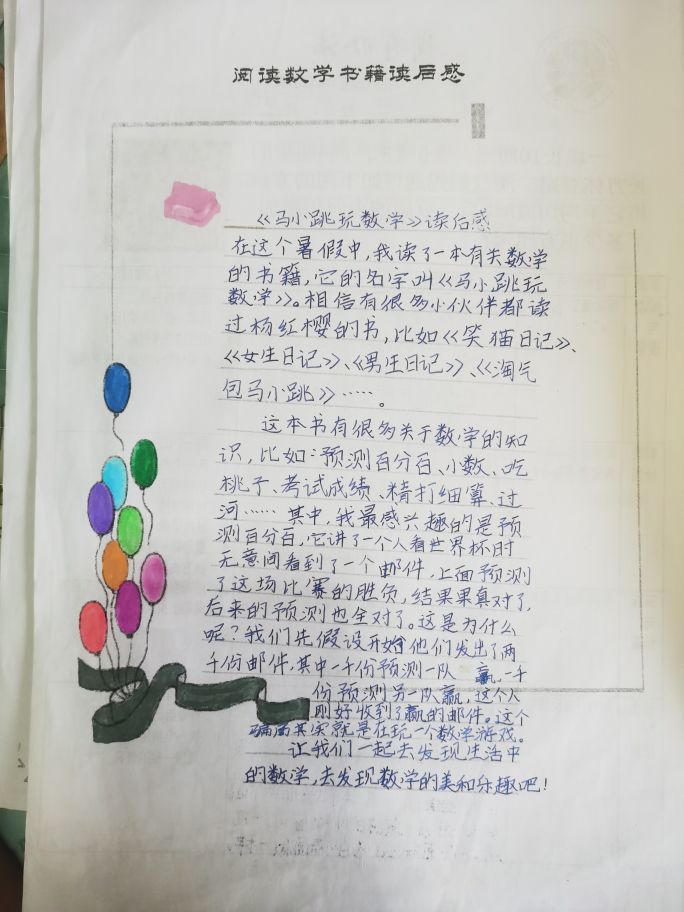 阅读数学书籍读后感
《马小跳玩数学》读后感
在这个暑假中，我读了一本有关数学
的书籍，它的名字叫《马小跳玩
数学》。相信有很多小伙伴都读
过杨红樱的书，比如《笑猫日记》、
《女生日记》、《男生日记》、《淘气
包马小跳》……。
这本书有很多关于数学的知
识，比如：预测百分百、小数、吃
桃子、考试成绩、精打细算、过
河……其中，我最感兴趣的是预
测百分百，它讲了一个人看世界杯时
无意间看到了一个邮件，上面预测
了这场比赛的胜负，结果果真对了，
后来的预测也全对了。这是为什么
呢？我们先假设开始他们发出了两
千份邮件，其中一千份预测一队赢，一千
份预测另一队赢，这个人
刚好收到了赢的邮件。这个
骗局其实就是在玩一个数学游戏。
让我们一起去发现生活中
的数学，去发现数学的美和乐趣吧！